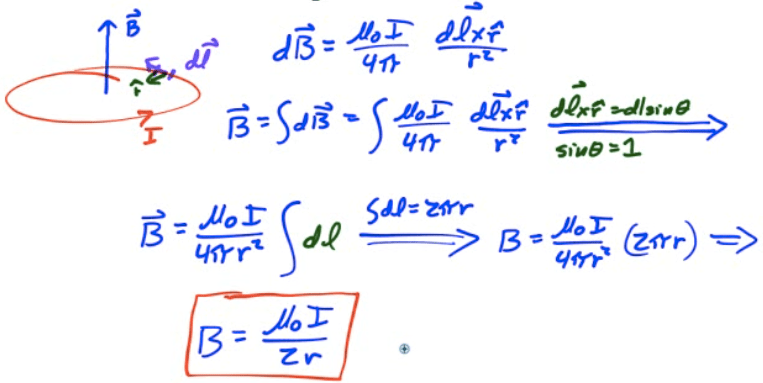 B⃗
dl⃗
r̂
I
dB⃗ = μ₀I/4π dl⃗×r̂/r²
B⃗ = ∫dB⃗ = ∫ μ₀I/4π dl⃗×r̂/r² dl⃗×r̂ = dlsinθ ⟹ sinθ = 1
B⃗ = μ₀I/4πr² ∫dl ∫dl = 2πr ⟹ B = μ₀I/4πr² (2πr) ⟹
B = μ₀I/2r